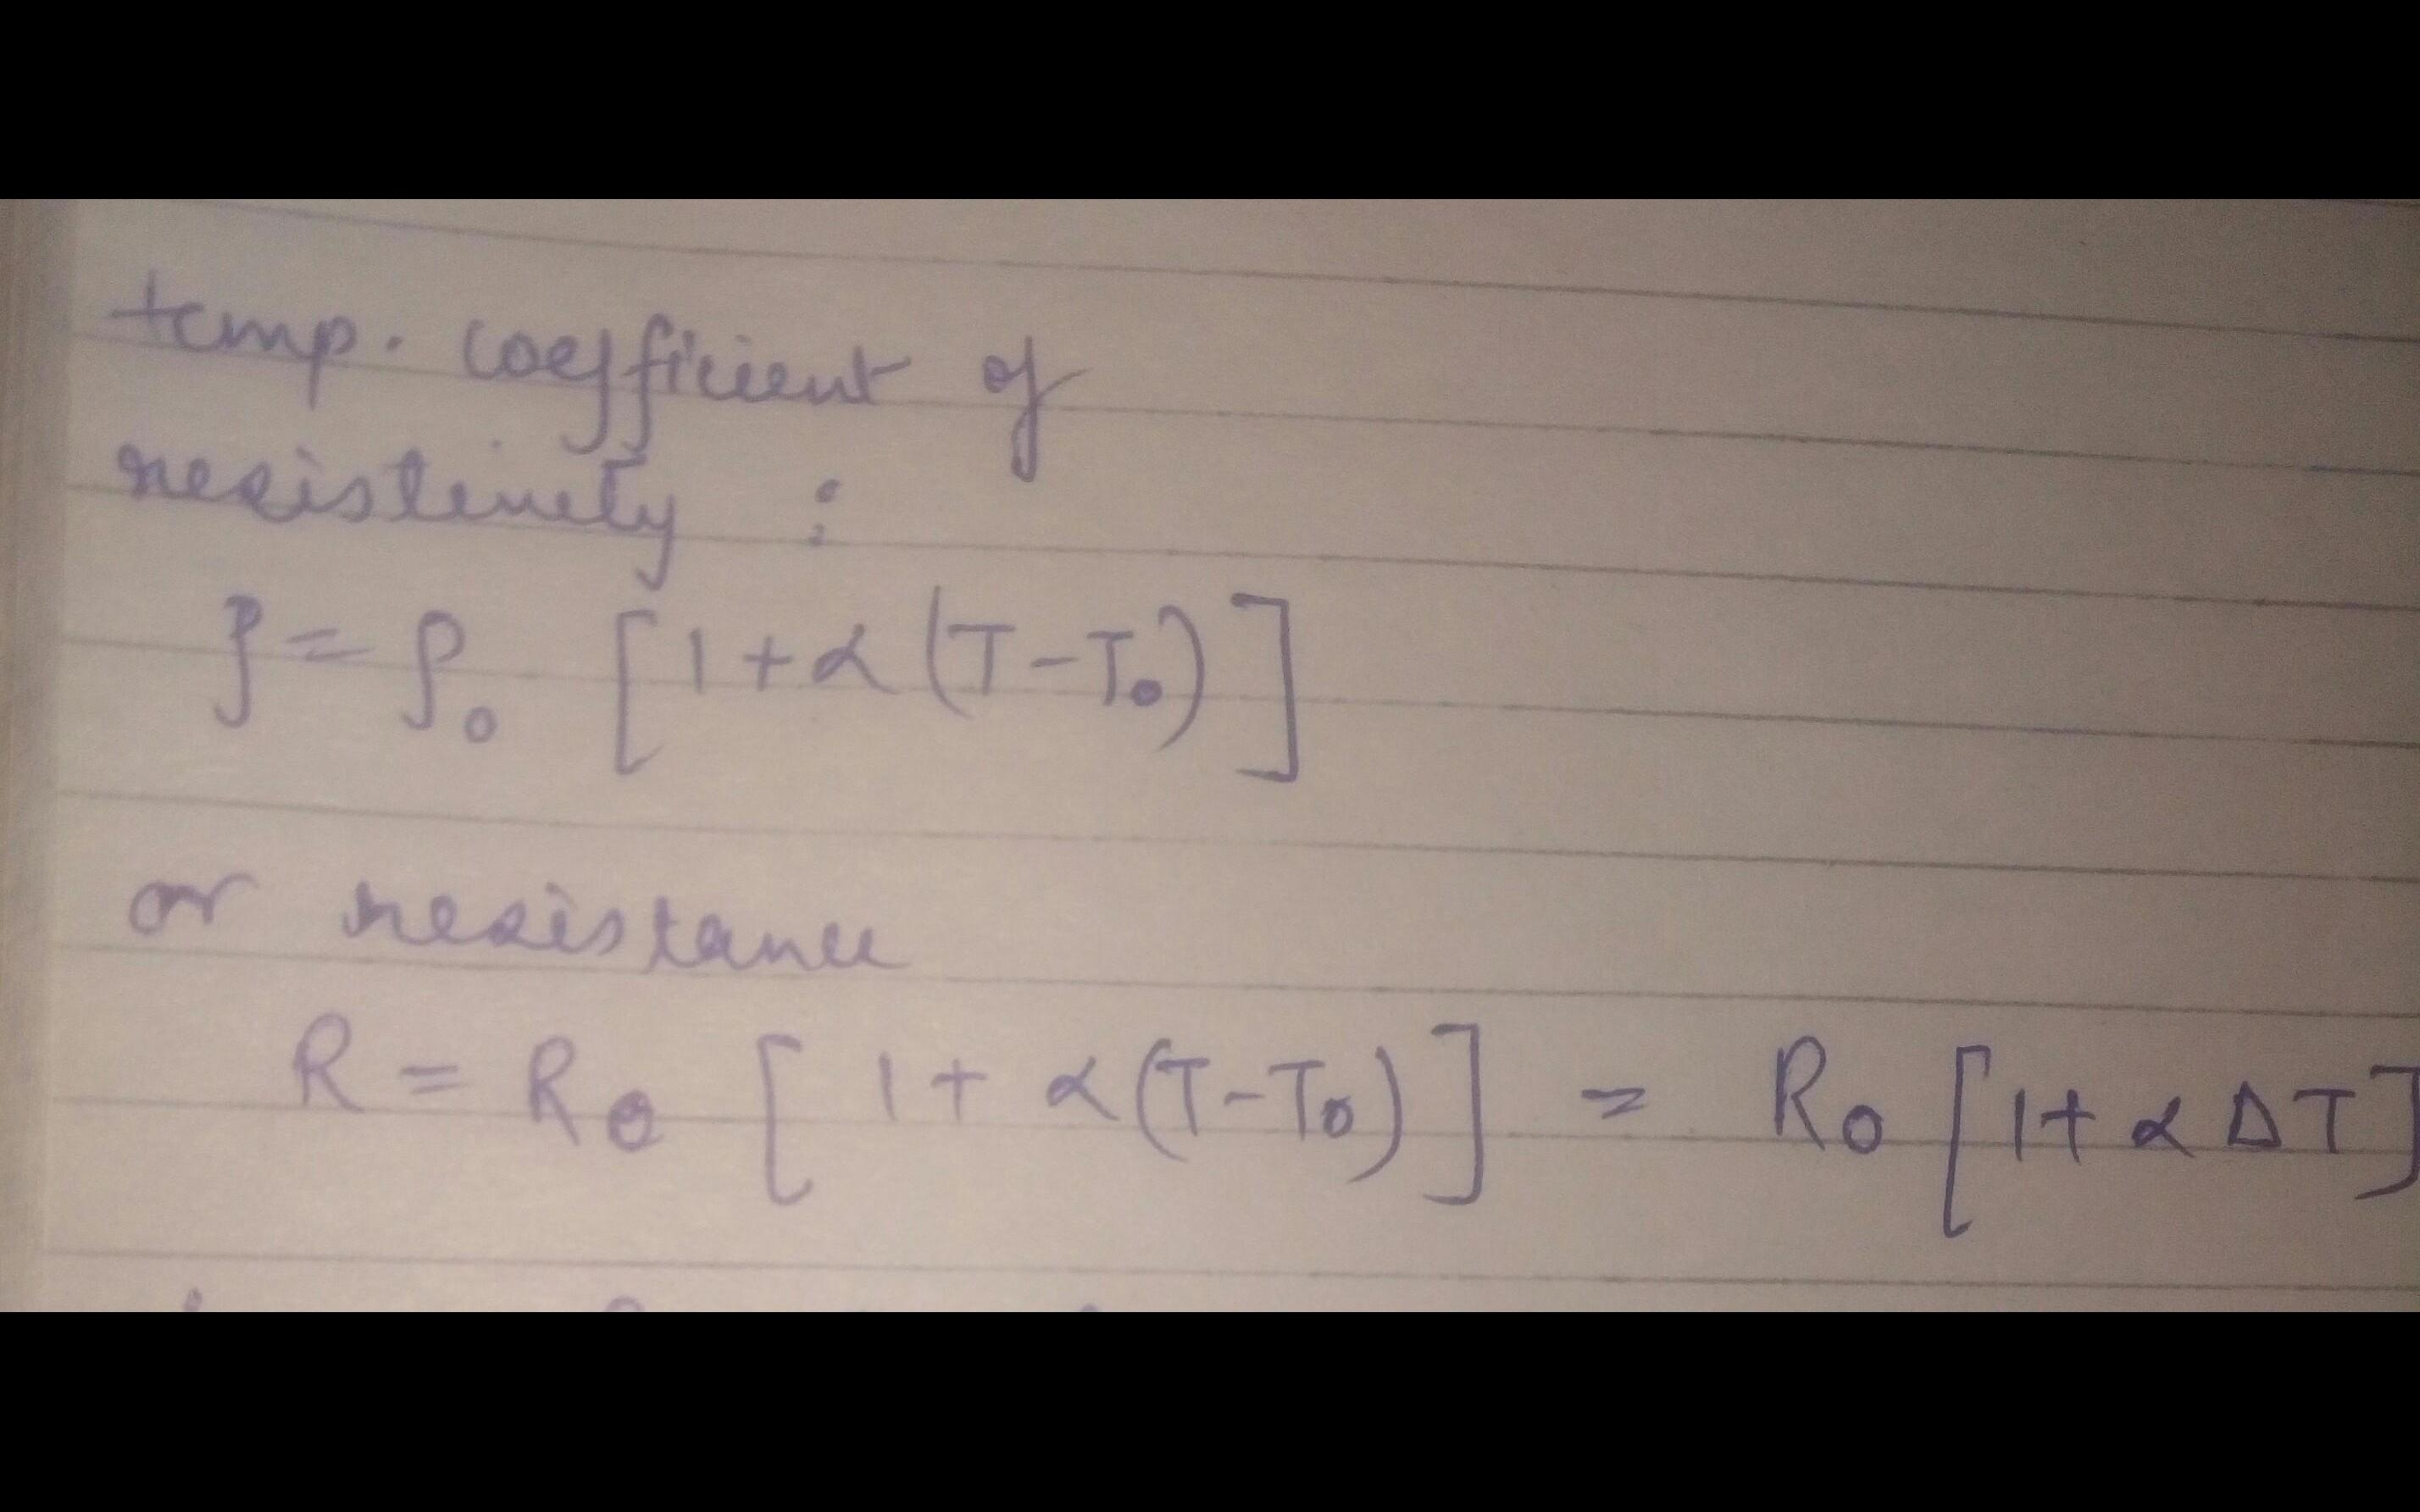 temp. coefficient of
resistivity :
ρ = ρ₀ [1 + α (T - T₀)]
or resistance
R = R₀ [1 + α (T - T₀)] = R₀ [1 + α Δ T]